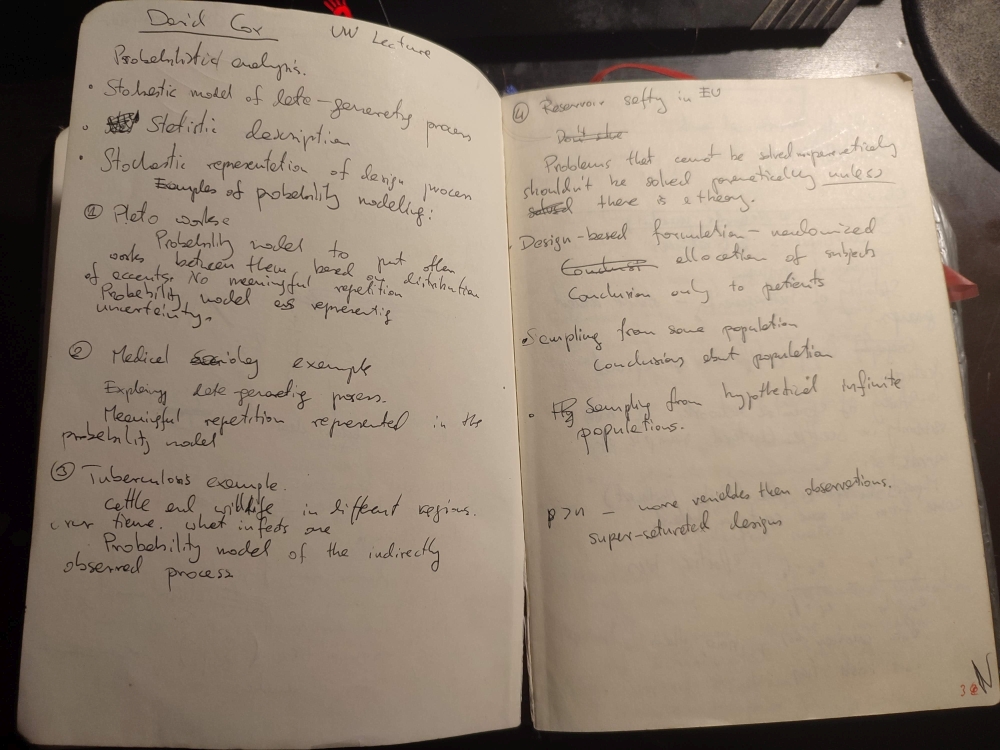 David Cox UW Lecture
Probabilistic analysis.
• Stochastic model of data-generating process
• Statistic description
• Stochastic representation of design process
Examples of probability modeling:
① Plato works
Probability model to put then
works between them based on distribution
of accents. No meaningful repetition
Probability model as representing
uncertainty.
② Medical example
Explaing data-generating process.
Meaningful repetition represented in the
probability model
③ Tuberculosis example.
Cattle and wildlife in different regions.
over time. what infects one
Probability model of the indirectly
observed process
④ Reservoir safty in EU
Don't
Problems that cannot be solved imperically
shouldn't be solved genetically unless
solved there is a theory.
• Design-based formulation - randomized
Conduct allocation of subjects
Conclusion only to patients
• Sampling from some population
Conclusions about population
• Sampling from hypothetical infinite
populations.
p>n - more variables then observations.
super-saturated designs
3
N